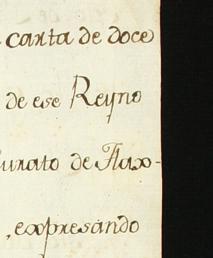 carta de doce
de ese Reyno
de Flax-
, expresando